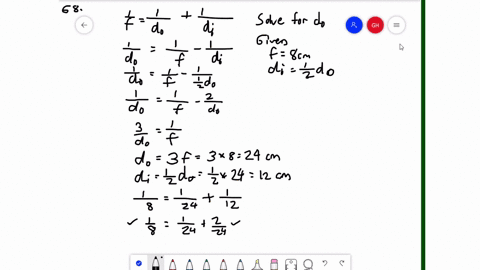 68.
1/f = 1/do + 1/di
Solve for do
1/do = 1/f - 1/di
Given
f = 8cm
di = 1/2 do
1/do = 1/f - 1/(1/2 do)
1/do = 1/f - 2/do
3/do = 1/f
do = 3f = 3*8 = 24 cm
di = 1/2 do = 1/2 * 24 = 12 cm
1/8 = 1/24 + 1/12
✓ 1/8 = 1/24 + 2/24 ✓
GH